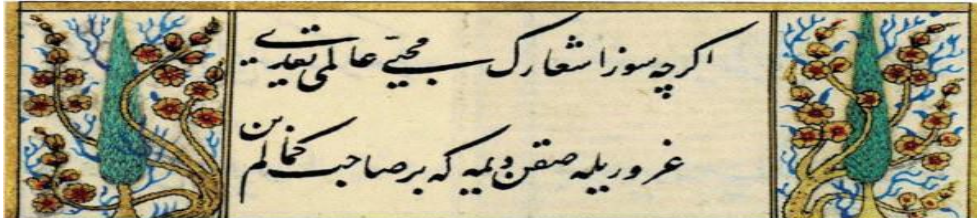 اكرچه سوز اشعارك محبّی عالمی يقدی
غروريله صقن ديمه كه بر صاحب كمالم بن